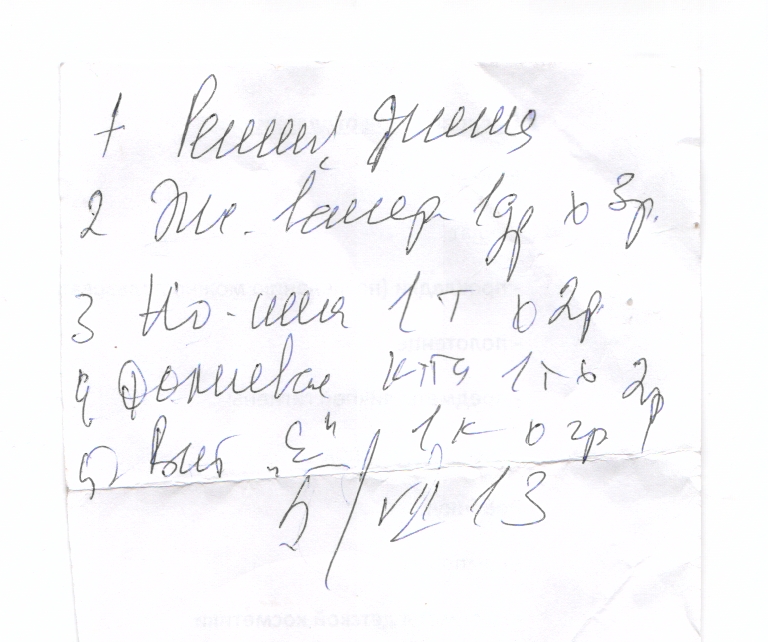 1 Режим, диета
2 Экс. валер. 1 др х 3р.
3 Но-шпа 1 т х 2р.
4 Фолиевая к-та 1т х 2р
5) Вит "Е" 1 к х 2р
5/VII 13